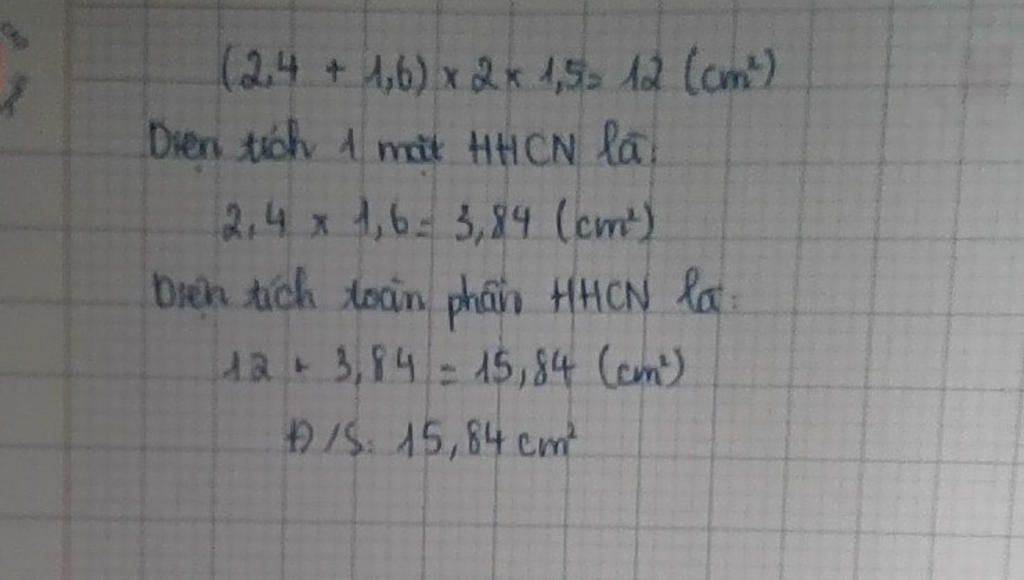 (2,4 + 1,6) x 2 x 1,5 = 12 (cm²)
Diện tích 1 mặt HHCN là:
2,4 x 1,6 = 3,84 (cm²)
Diện tích toàn phần HHCN là:
12 + 3,84 = 15,84 (cm²)
Đ/S: 15,84 cm²